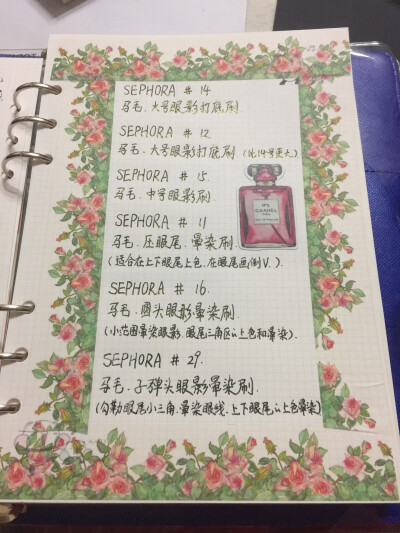 SEPHORA # 14
马毛.大号眼影打底刷
SEPHORA # 12
马毛.大号眼影打底刷 (比14号更大)
SEPHORA # 15
马毛.中号眼影刷
SEPHORA # 11
马毛.压眼尾.晕染刷
(适合在上下眼尾上色.在眼尾画倒V.)
SEPHORA # 16.
马毛.圆头眼影晕染刷
(小范围晕染眼影.眼尾三角区的上色和晕染).
SEPHORA # 29.
马毛.子弹头眼影晕染刷.
(勾勒眼尾小三角.晕染眼线.上下眼尾的上色晕染)
N°5
CHANEL
PARIS